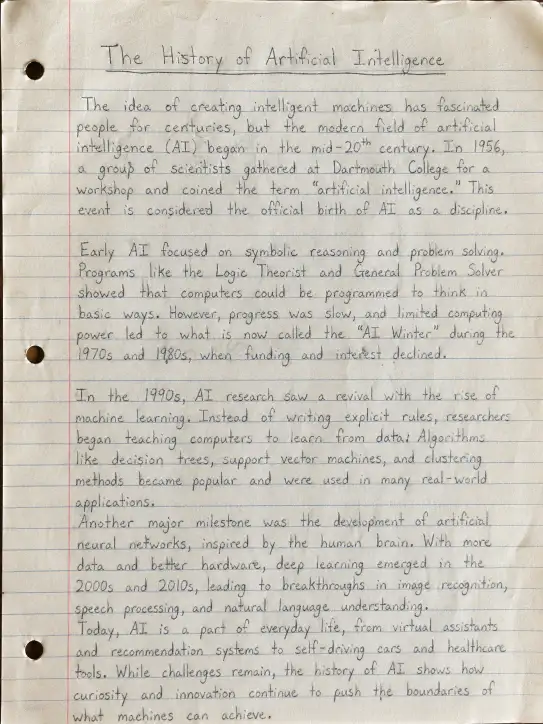 The History of Artificial Intelligence
The idea of creating intelligent machines has fascinated
people for centuries, but the modern field of artificial
intelligence (AI) began in the mid-20th century. In 1956,
a group of scientists gathered at Dartmouth College for a
workshop and coined the term "artificial intelligence." This
event is considered the official birth of AI as a discipline.
Early AI focused on symbolic reasoning and problem solving.
Programs like the Logic Theorist and General Problem Solver
showed that computers could be programmed to think in
basic ways. However, progress was slow, and limited computing
power led to what is now called the "AI Winter" during the
1970s and 1980s, when funding and interest declined.
In the 1990s, AI research saw a revival with the rise of
machine learning. Instead of writing explicit rules, researchers
began teaching computers to learn from data: Algorithms
like decision trees, support vector machines, and clustering
methods became popular and were used in many real-world
applications.
Another major milestone was the development of artificial
neural networks, inspired by the human brain. With more
data and better hardware, deep learning emerged in the
2000s and 2010s, leading to breakthroughs in image recognition,
speech processing, and natural language understanding.
Today, AI is a part of everyday life, from virtual assistants
and recommendation systems to self-driving cars and healthcare
tools. While challenges remain, the history of AI shows how
curiosity and innovation continue to push the boundaries of
what machines can achieve.